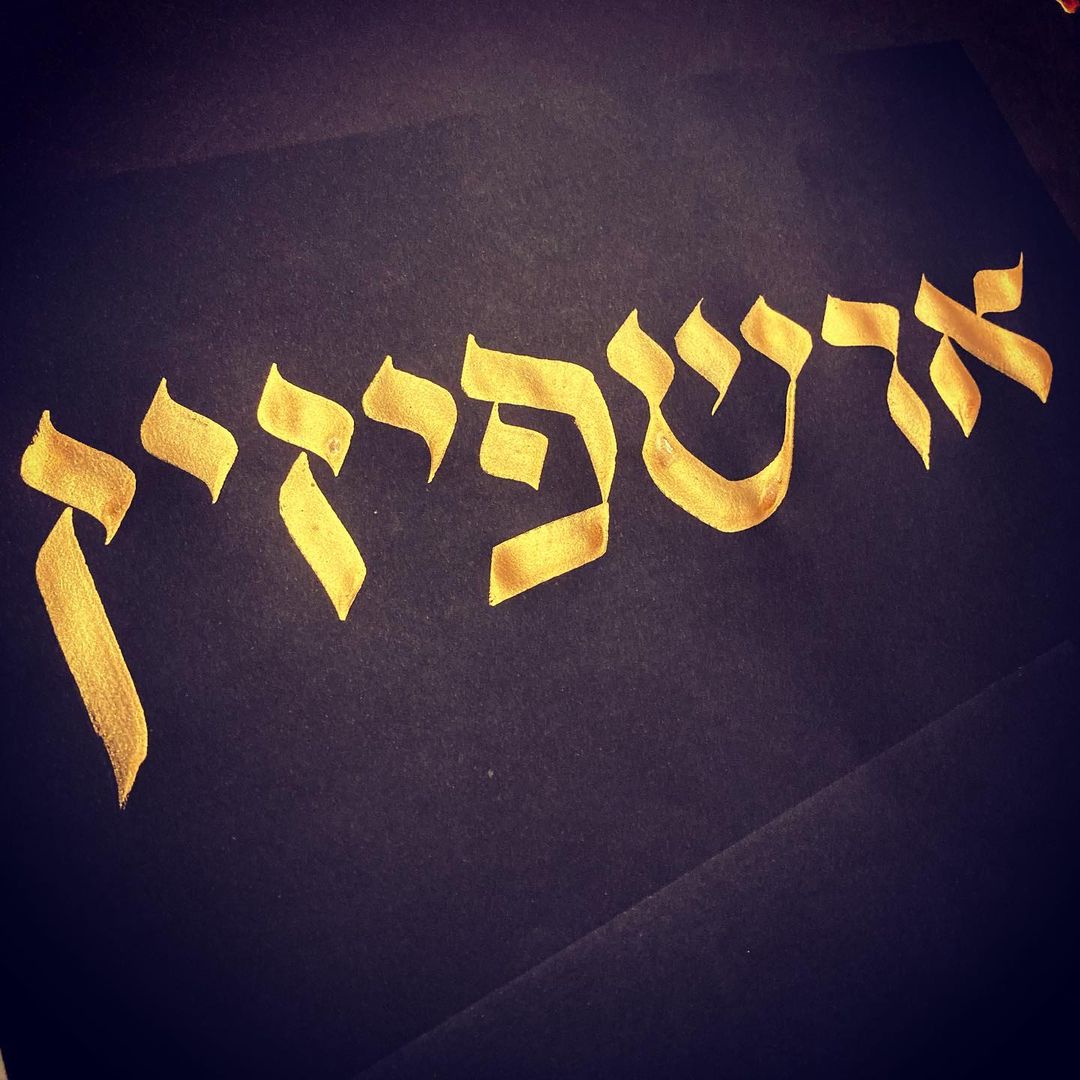 אושפיזין